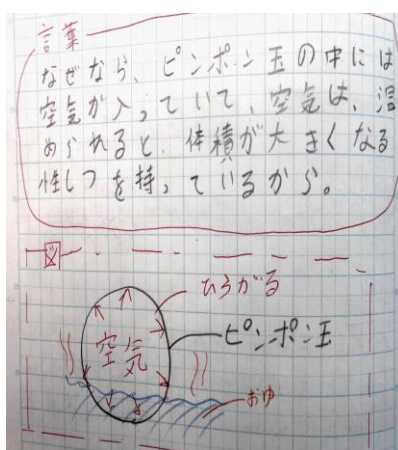 言葉
なぜなら、ピンポン玉の中には
空気が入っていて、空気は、温
められると、体積が大きくなる
性しつを持っているから。
図
ひろがる
ピンポン玉
空気
おゆ